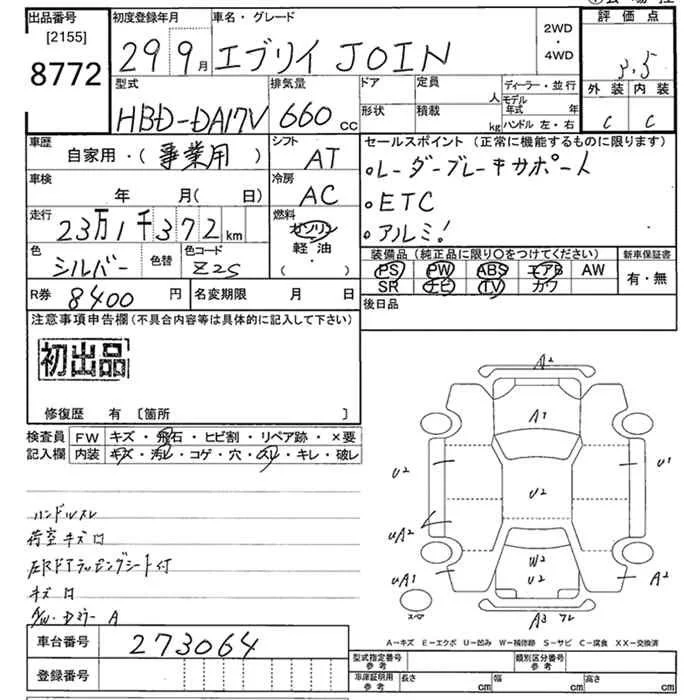 出品番号
[2155]
8772
初度登録年月
29 9月
車名・グレード
エブリイ JOIN
2WD
・
4WD
評価点
3.5
外装 内装
C C
型式
HBD-DA17V
排気量
660 cc
ドア
形状
定員
人
積載
kg
ディーラー・並行
モデル年式 年
ハンドル 左・右
車歴
自家用・(事業用)
シフト
AT
車検
年 月(日)
冷房
AC
走行
23万1千372km
燃料
ガソリン
軽・油
( ・ )
色
シルバー
色替
色コード
Z2S
R券 8400円
名変期限 月 日
セールスポイント (正常に機能するものに限ります)
・レーダーブレーキサポート
・ETC
・アルミ!
装備品 (純正品に限り○をつけてください)
PS PW ABS エアB AW
SR ナビ TV カワ
新車保証書
有・無
後日品
注意事項申告欄(不具合内容等は具体的に記入して下さい)
初出品
修復歴 有 [箇所 ]
検査員記入欄
FW キズ・飛石・ヒビ割・リペア跡・×要
内装 キズ・汚レ・コゲ・穴・スレ・キレ・破レ
ハンドルスレ
荷室キズ
キズ
A/W・Dミラー A
A2
A1
U2
U1
U2
UA2
W2
U2
UA1
A2
スペア
A3
A-キズ E-エクボ U-凹み W-補修跡 S-サビ C-腐食 XX-交換済
車台番号
273064
登録番号
型式指定番号
参考
類別区分番号
参考
車庫証明用
参考
長さ cm
幅 cm
高さ cm